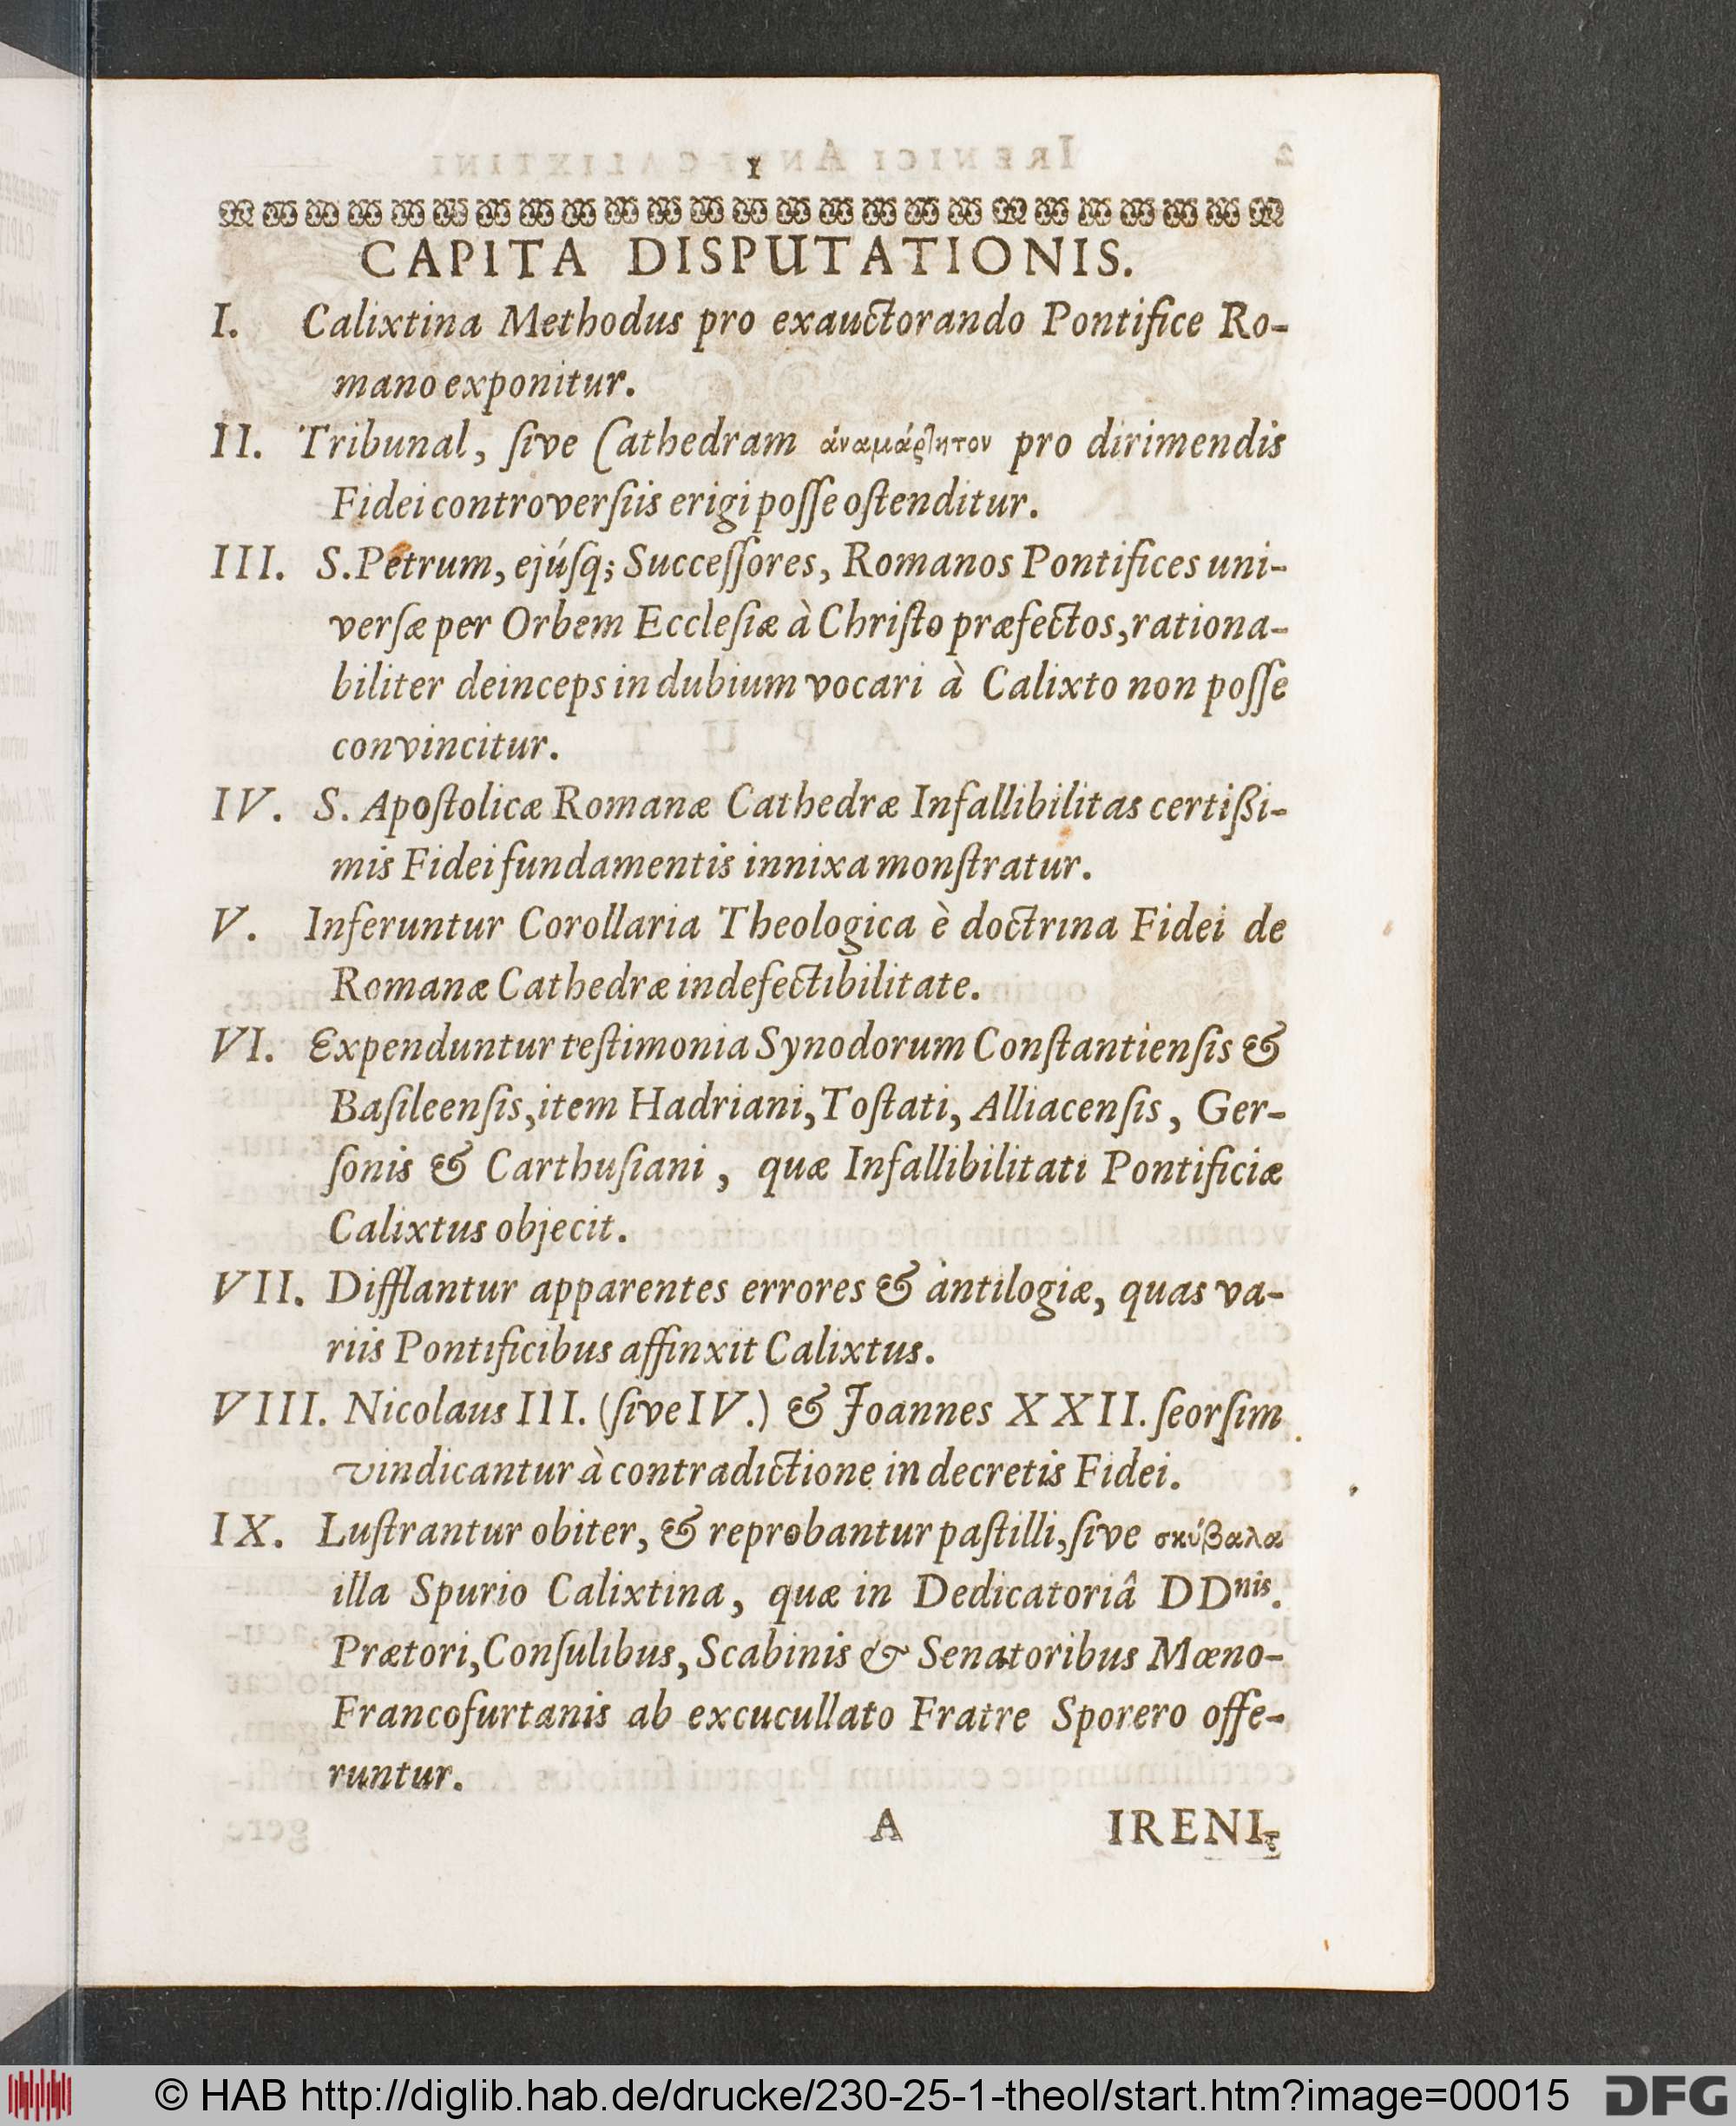 1
CAPITA DISPUTATIONIS.
I. Calixtina Methodus pro exauctorando Pontifice Ro-
mano exponitur.
II. Tribunal, ſive Cathedram ἀναμάρτητον pro dirimendis
Fidei controverſiis erigi poſſe oſtenditur.
III. S. Petrum, ejúſq; Succeſſores, Romanos Pontifices uni-
verſæ per Orbem Eccleſiæ à Chriſto præfectos, rationa-
biliter deinceps in dubium vocari à Calixto non poſſe
convincitur.
IV. S. Apoſtolicæ Romanæ Cathedræ Infallibilitas certißi-
mis Fidei fundamentis innixa monſtratur.
V. Inferuntur Corollaria Theologica è doctrina Fidei de
Romanæ Cathedræ indefectibilitate.
VI. Expenduntur teſtimonia Synodorum Conſtantienſis &
Baſileenſis, item Hadriani, Toſtati, Alliacenſis, Ger-
ſonis & Carthuſiani, quæ Infallibilitati Pontificiæ
Calixtus objecit.
VII. Difflantur apparentes errores & àntilogiæ, quas va-
riis Pontificibus affinxit Calixtus.
VIII. Nicolaus III. (ſive IV.) & Joannes XXII. ſeorſim
vindicantur à contradictione in decretis Fidei.
IX. Luſtrantur obiter, & reprobantur paſtilli, ſive σκύβαλα
illa Spurio Calixtina, quæ in Dedicatoriâ DDnis.
Prætori, Conſulibus, Scabinis & Senatoribus Mœno-
Francofurtanis ab excucullato Fratre Sporero offe-
runtur.
A IRENI-
© HAB http://diglib.hab.de/drucke/230-25-1-theol/start.htm?image=00015 DFG